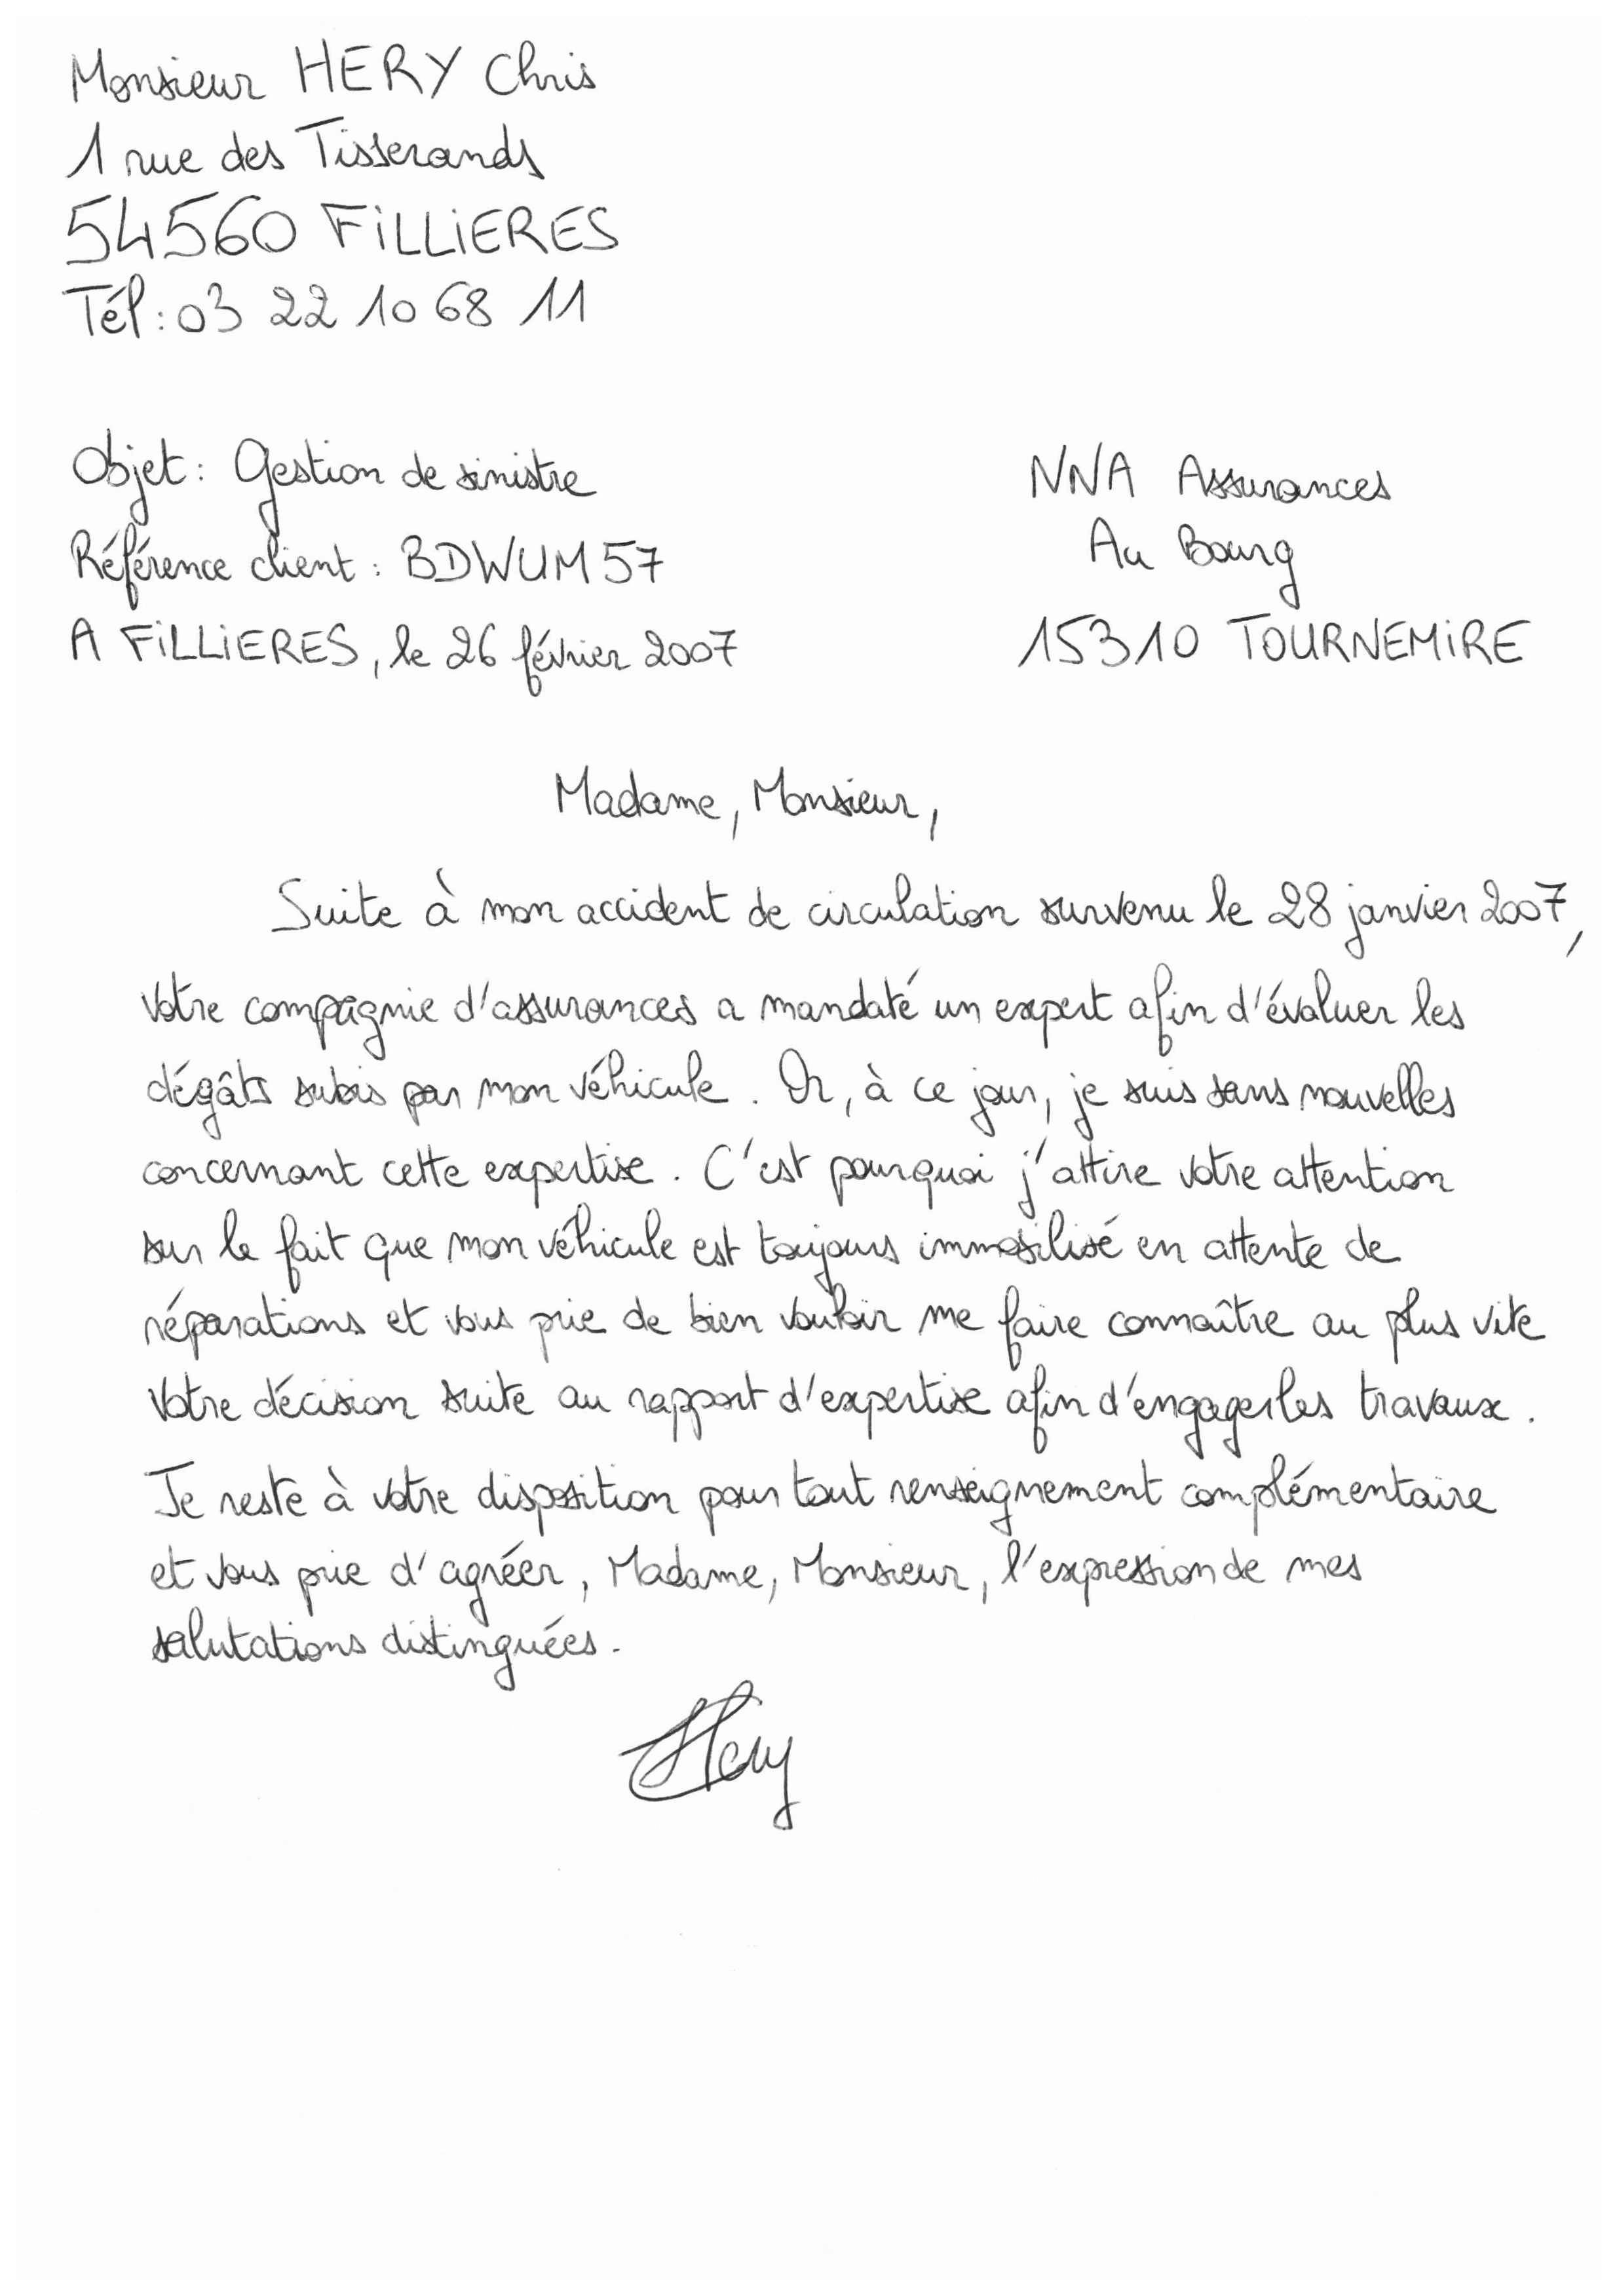 Monsieur HERY Chris
1 rue des Tisserands
54560 FILLIERES
Tél : 03 22 10 68 11
Objet : Gestion de sinistre
Référence client : BDWUM57
A FILLIERES, le 26 février 2007
NNA Assurances
Au Bourg
15310 TOURNEMIRE
Madame, Monsieur,
Suite à mon accident de circulation survenu le 28 janvier 2007,
votre compagnie d'assurances a mandaté un expert afin d'évaluer les
dégâts subis par mon véhicule. Or, à ce jour, je suis sans nouvelles
concernant cette expertise. C'est pourquoi j'attire votre attention
sur le fait que mon véhicule est toujours immobilisé en attente de
réparations et vous prie de bien vouloir me faire connaître au plus vite
votre décision suite au rapport d'expertise afin d'engager les travaux.
Je reste à votre disposition pour tout renseignement complémentaire
et vous prie d'agréer, Madame, Monsieur, l'expression de mes
salutations distinguées.
Hery